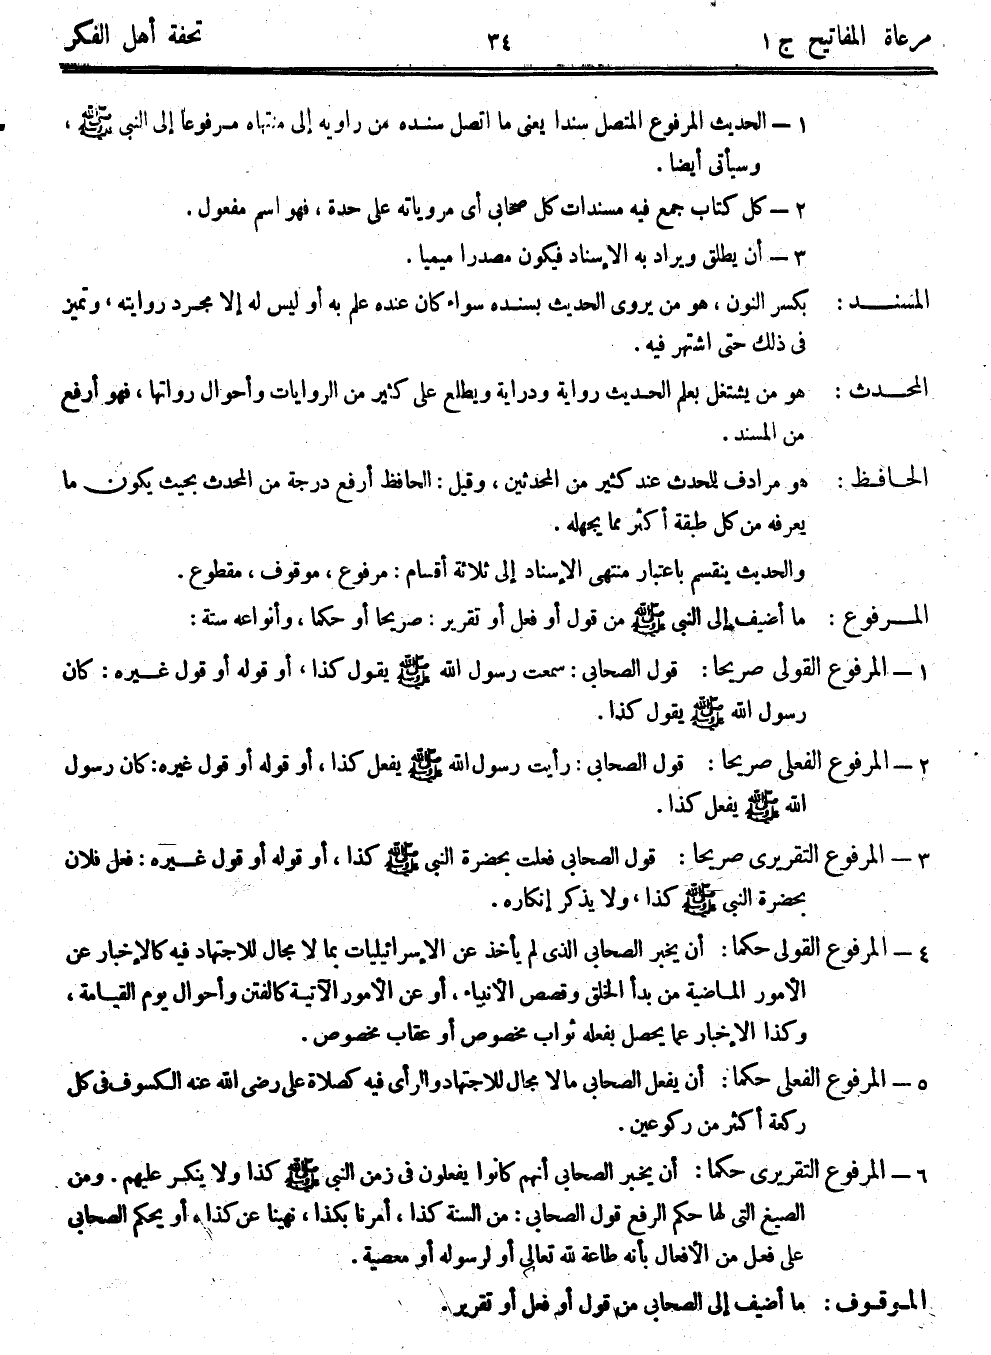 مرعاة المفاتيح ج ١ ٣٤ تحفة أهل الفكر
١ – الحديث المرفوع المتصل سندا يعنى ما اتصل سنده من راويه إلى منتهاه مرفوعا إلى النبى ﷺ ،
وسيأتى أيضا .
٢ – كل كتاب جمع فيه مسندات كل صحابى أى مروياته على حدة ، فهو اسم مفعول .
٣ – أن يطلق ويراد به الإسناد فيكون مصدرا ميميا .
المسند : بكسر النون ، هو من يروى الحديث بسنده سواء كان عنده علم به أو ليس له إلا مجرد روايته ، وتميز
فى ذلك حتى اشتهر فيه .
المحدث : هو من يشتغل بعلم الحديث رواية ودراية ويطلع على كثير من الروايات وأحوال رواتها ، فهو أرفع
من المسند .
الحافظ : هو مرادف للحدث عند كثير من المحدثين ، وقيل : الحافظ أرفع درجة من المحدث بحيث يكون ما
يعرفه من كل طبقة أكثر مما يجهله .
والحديث ينقسم باعتبار منتهى الإسناد إلى ثلاثة أقسام : مرفوع ، موقوف ، مقطوع .
المرفوع : ما أضيف إلى النبى ﷺ من قول أو فعل أو تقرير : صريحا أو حكما ، وأنواعه ستة :
١ – المرفوع القولى صريحا : قول الصحابى : سمعت رسول الله ﷺ يقول كذا ، أو قوله أو قول غيره : كان
رسول الله ﷺ يقول كذا .
٢ – المرفوع الفعلى صريحا : قول الصحابى : رأيت رسول الله ﷺ يفعل كذا ، أو قوله أو قول غيره : كان رسول
الله ﷺ يفعل كذا .
٣ – المرفوع التقريرى صريحا : قول الصحابى فعلت بحضرة النبى ﷺ كذا ، أو قوله أو قول غيره : فعل فلان
بحضرة النبى ﷺ كذا ، ولا يذكر إنكاره .
٤ – المرفوع القولى حكما : أن يخبر الصحابى الذى لم يأخذ عن الإسرائيليات بما لا مجال للاجتهاد فيه كالإخبار عن
الأمور الماضية من بدأ الخلق وقصص الأنبياء ، أو عن الأمور الآتية كالفتن وأحوال يوم القيامة ،
وكذا الإخبار عما يحصل بفعله ثواب مخصوص أو عقاب مخصوص .
٥ – المرفوع الفعلى حكما : أن يفعل الصحابى مالا مجال للاجتهاد والرأى فيه كصلاة على رضى الله عنه الكسوف فى كل
ركعة أكثر من ركوعين .
٦ – المرفوع التقريرى حكما : أن يخبر الصحابى أنهم كانوا يفعلون فى زمن النبى ﷺ كذا ولا ينكر عليهم . ومن
الصيغ التى لها حكم الرفع قول الصحابى : من السنة كذا ، أمرنا بكذا ، نهينا عن كذا ، أو يحكم الصحابى
على فعل من الأفعال بأنه طاعة لله تعالى أو لرسوله أو معصية .
الموقوف : ما أضيف إلى الصحابى من قول أو فعل أو تقرير .